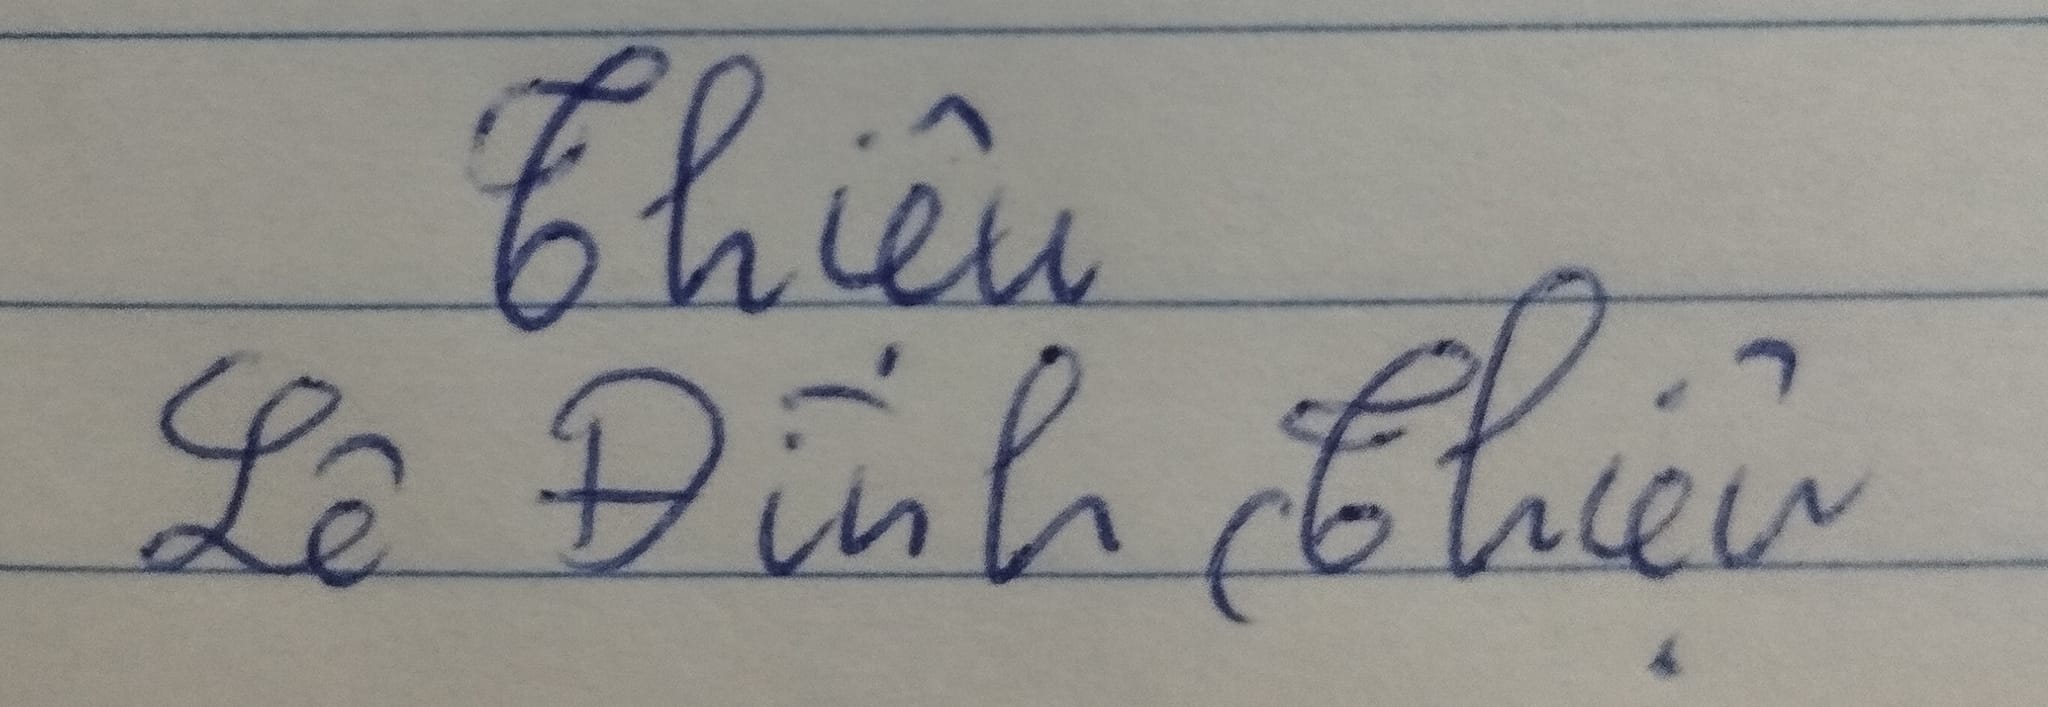 Thiên
Lê Đình Thiện